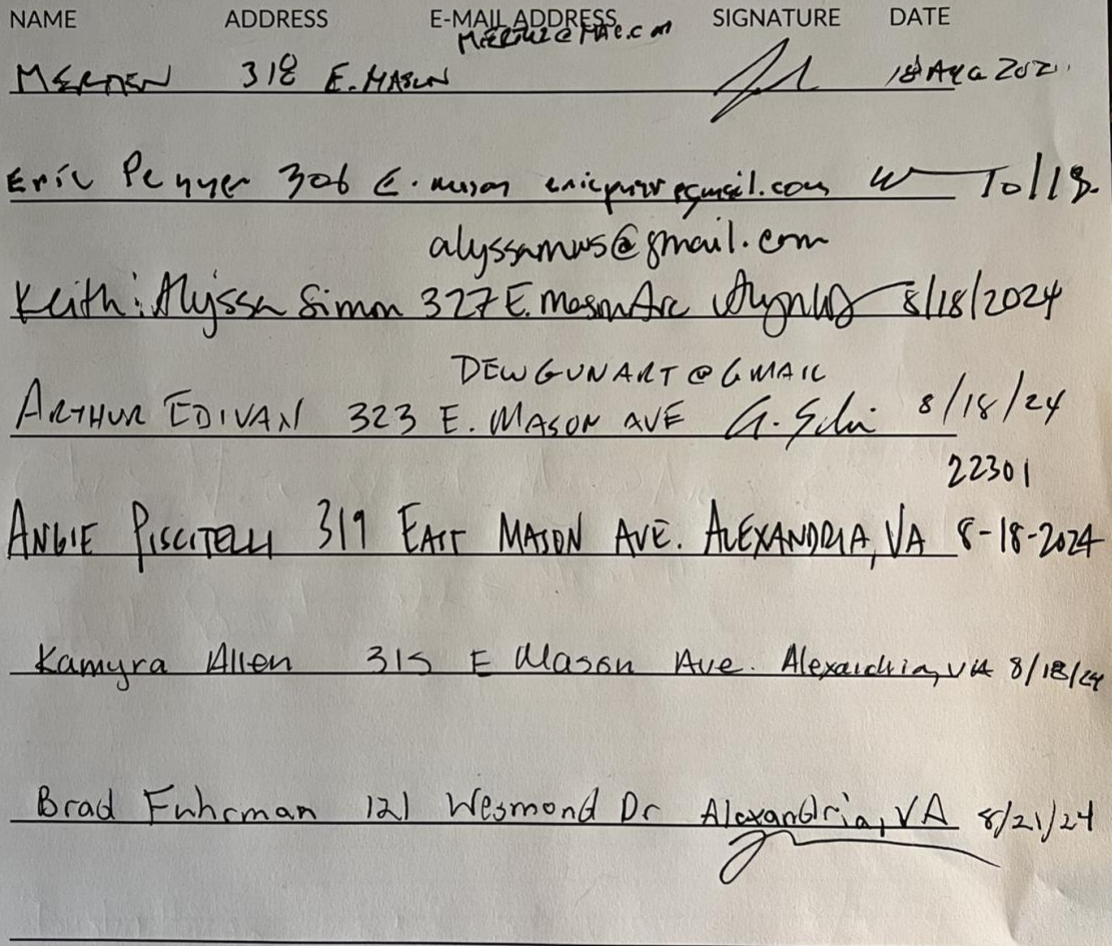 NAME ADDRESS E-MAIL ADDRESS SIGNATURE DATE
318 E. MASON
Eric 306 E.
alyssamws@gmail.com
Keith : Alyssa Simon 327 E. Mason Ave 8/18/2024
DEWGUNART@GMAIL
ARTHUR EDIVAN 323 E. MASON AVE 8/18/24
22301
ANGIE PISCITELLI 319 EAST MASON AVE. ALEXANDRIA, VA 8-18-2024
Kamyra Allen 315 E Mason Ave. Alexandria, VA 8/18/24
Brad Fuhrman 121 Wesmond Dr Alexandria, VA 8/21/24